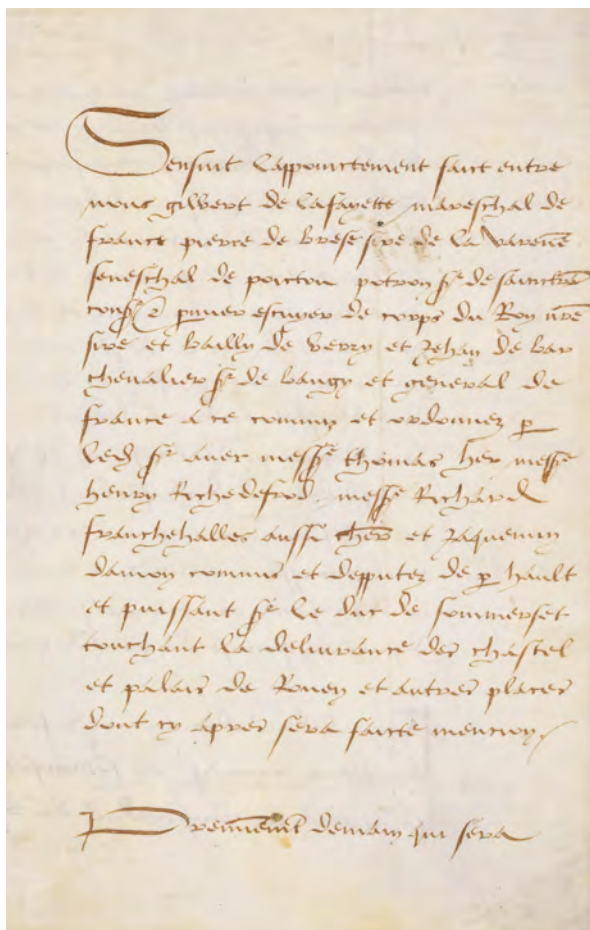 Sensuit lappoinctement faict entre
nous gilbert de lafayette mareschal de
france pierre de brese sire de la varenñe
seneschal de poictou potron sr de sainctres
consr premier escuyer de corps du Roy nre
sire et bailly de berry et Jehan de bar
chevalier sr de baugy et general de
france a ce commis et ordonnez p
led sr avec messre thomas her messre
henry Richedeford messre Richard
franchehalles aussi cher et Jaquemin
damon commis et depputez de p hault
et puissant sr le duc de sommerset
touchant la delivrance des chastel
et palais de Rouen et autres places
dont cy apres sera faicte mencion
Premierement demain qui sera